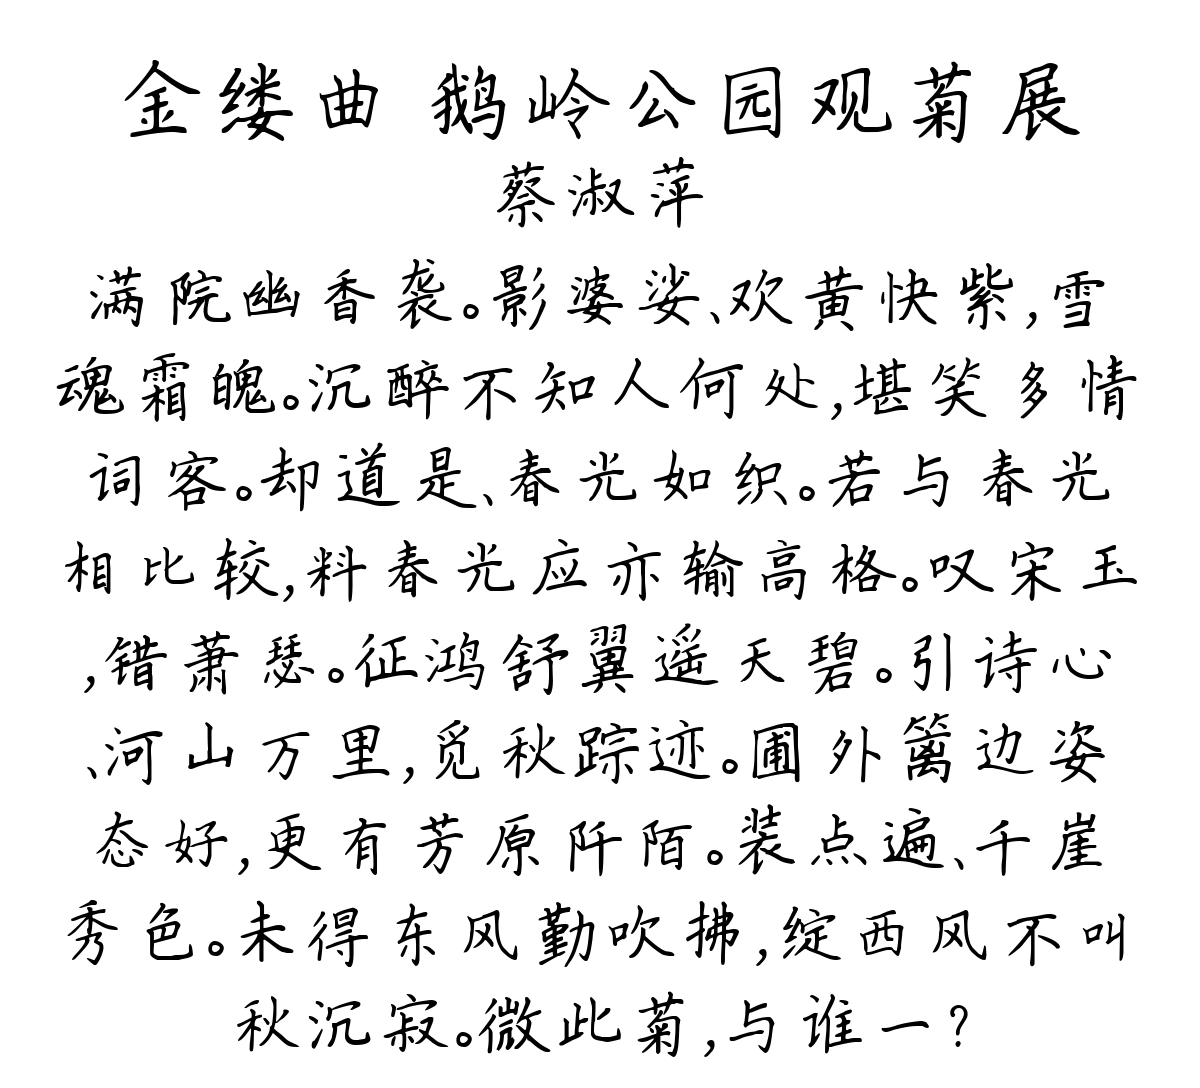 金缕曲 鹅岭公园观菊展
蔡淑萍
满院幽香袭。影婆娑、欢黄快紫，雪
魂霜魄。沉醉不知人何处，堪笑多情
词客。却道是、春光如织。若与春光
相比较，料春光应亦输高格。叹宋玉
，错萧瑟。征鸿舒翼遥天碧。引诗心
、河山万里，觅秋踪迹。圃外篱边姿
态好，更有芳原阡陌。装点遍、千崖
秀色。未得东风勤吹拂，绽西风不叫
秋沉寂。微此菊，与谁一？